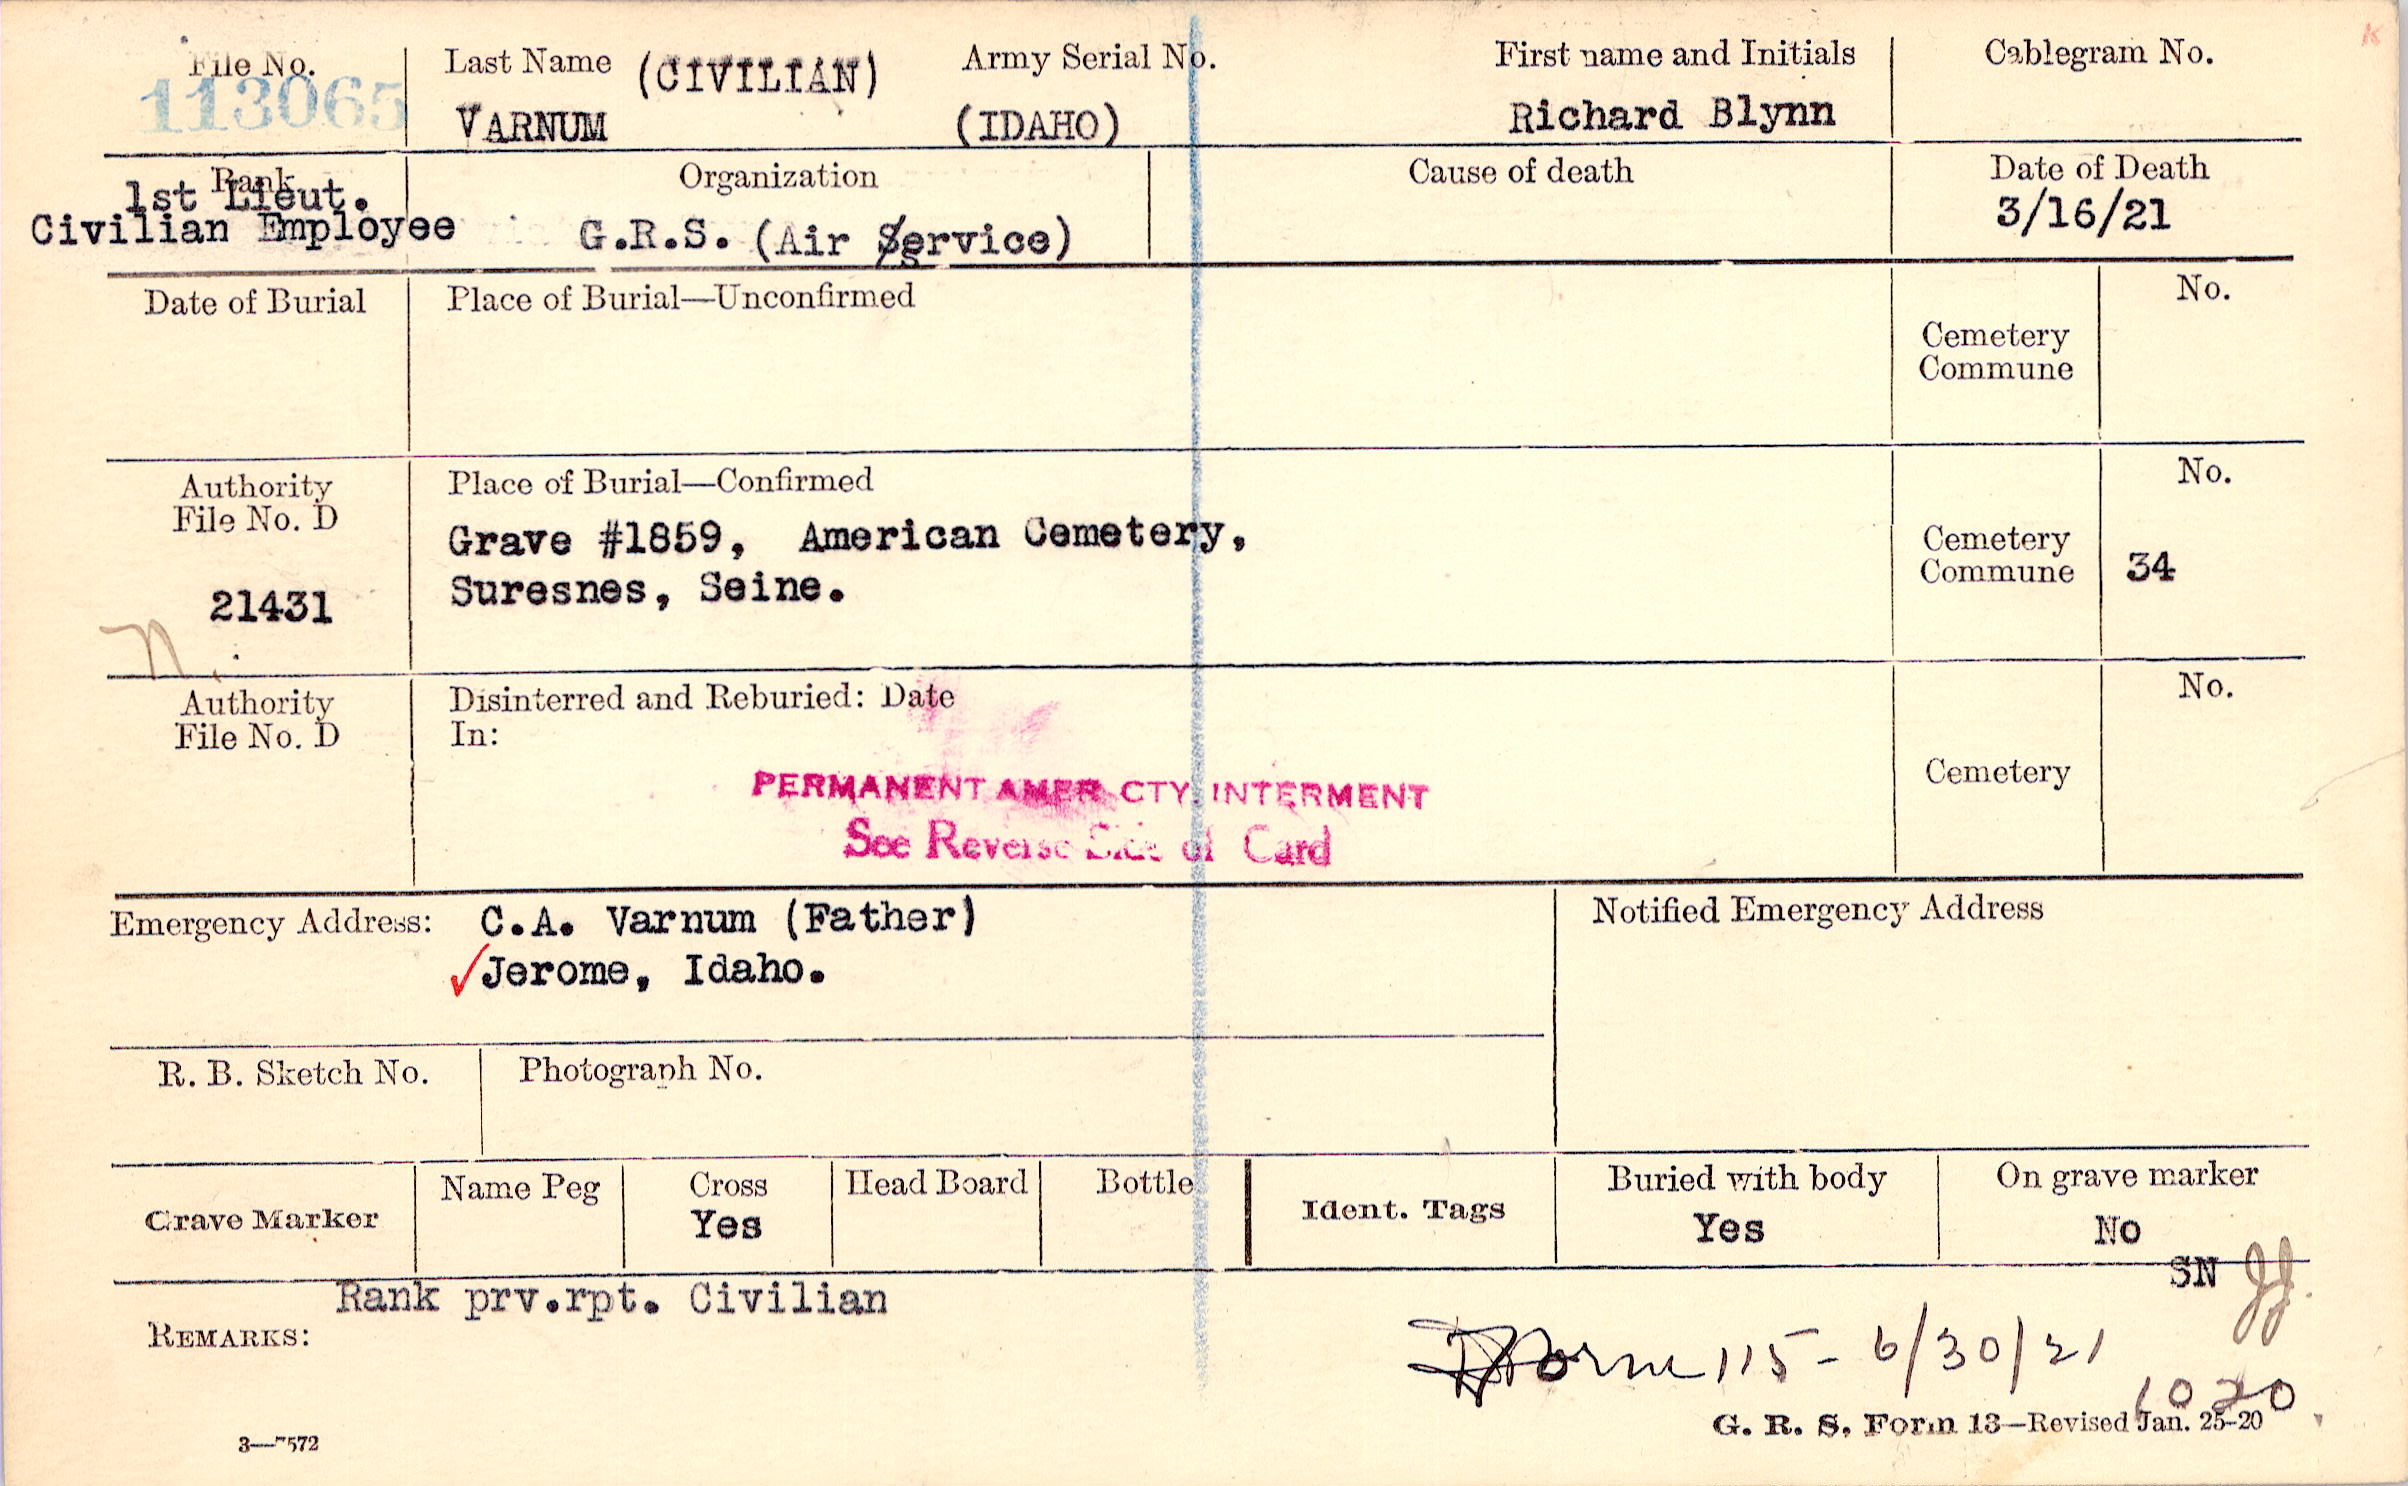 File No.
113065
Last Name (CIVILIAN) Army Serial No. First name and Initials Cablegram No.
VARNUM (IDAHO) Richard Blynn
Rank
1st Lieut.
Civilian Employee
Organization
G.R.S. (Air Service)
Cause of death
Date of Death
3/16/21
Date of Burial
Place of Burial—Unconfirmed
Cemetery
Commune
No.
Authority
File No. D
21431
Place of Burial—Confirmed
Grave #1859, American Cemetery,
Suresnes, Seine.
Cemetery
Commune
No.
34
Authority
File No. D
Disinterred and Reburied: Date
In:
PERMANENT AMER CTY. INTERMENT
See Reverse Side of Card
Cemetery
No.
Emergency Address: C.A. Varnum (Father)
Jerome, Idaho.
Notified Emergency Address
R. B. Sketch No.
Photograph No.
Grave Marker
Name Peg
Cross
Yes
Head Board
Bottle
Ident. Tags
Buried with body
Yes
On grave marker
No
SN
Rank prv.rpt. Civilian
REMARKS:
Form 115 - 6/30/21
1020
3—7572
G. R. S. Form 13—Revised Jan. 25-20
K